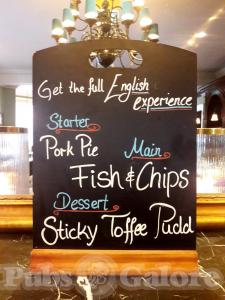 Get the full English
experience
Starter
Pork Pie
Main
Fish & Chips
Dessert
Sticky Toffee Pudd
Pubs Galore